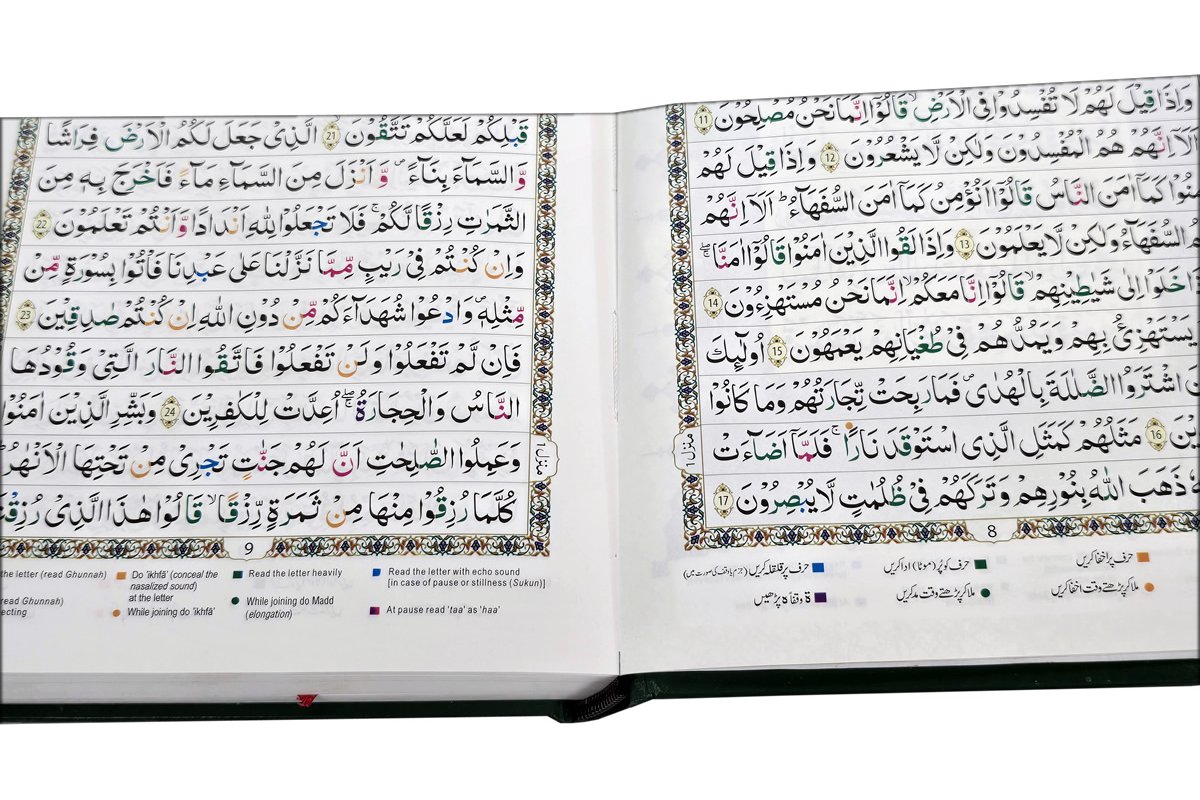 وَاِذَا قِيْلَ لَهُمْ لَا تُفْسِدُوْا فِى الْاَرْضِ ۙ قَالُوْٓا اِنَّمَا نَحْنُ مُصْلِحُوْنَ 11
اَلَآ اِنَّهُمْ هُمُ الْمُفْسِدُوْنَ وَلٰكِنْ لَّا يَشْعُرُوْنَ 12 وَاِذَا قِيْلَ لَهُمْ
كَمَآ اٰمَنَ النَّاسُ قَالُوْٓا اَنُؤْمِنُ كَمَآ اٰمَنَ السُّفَهَآءُ ؕ اَلَآ اِنَّهُمْ
السُّفَهَآءُ وَلٰكِنْ لَّا يَعْلَمُوْنَ 13 وَاِذَا لَقُوا الَّذِيْنَ اٰمَنُوْا قَالُوْٓا اٰمَنَّا ۖۚ
خَلَوْا اِلٰى شَيٰطِيْنِهِمْ ۙ قَالُوْٓا اِنَّا مَعَكُمْ ۙ اِنَّمَا نَحْنُ مُسْتَهْزِءُوْنَ 14
يَسْتَهْزِئُ بِهِمْ وَيَمُدُّهُمْ فِىْ طُغْيَانِهِمْ يَعْمَهُوْنَ 15 اُولٰٓئِكَ
اشْتَرَوُا الضَّلٰلَةَ بِالْهُدٰى ۪ فَمَا رَبِحَتْ تِّجَارَتُهُمْ وَمَا كَانُوْا
16 مَثَلُهُمْ كَمَثَلِ الَّذِى اسْتَوْقَدَ نَارًا ۚ فَلَمَّآ اَضَآءَتْ
ذَهَبَ اللّٰهُ بِنُوْرِهِمْ وَتَرَكَهُمْ فِىْ ظُلُمٰتٍ لَّا يُبْصِرُوْنَ 17
منزل ١
8
حرف پر اخفا کریں
حرف کو پُر (موٹا) ادا کریں
حرف پر قلقلہ کریں (جزم یا وقف کی صورت میں)
ملا کر پڑھتے وقت اخفا کریں
ملا کر پڑھتے وقت مد کریں
ۃ وقفا ہ پڑھیں
قَبْلِكُمْ لَعَلَّكُمْ تَتَّقُوْنَ 21 الَّذِىْ جَعَلَ لَكُمُ الْاَرْضَ فِرَاشًا
وَّالسَّمَآءَ بِنَآءً ۪ وَّاَنْزَلَ مِنَ السَّمَآءِ مَآءً فَاَخْرَجَ بِهٖ مِنَ
الثَّمَرٰتِ رِزْقًا لَّكُمْ ۚ فَلَا تَجْعَلُوْا لِلّٰهِ اَنْدَادًا وَّاَنْتُمْ تَعْلَمُوْنَ 22
وَاِنْ كُنْتُمْ فِىْ رَيْبٍ مِّمَّا نَزَّلْنَا عَلٰى عَبْدِنَا فَاْتُوْا بِسُوْرَةٍ مِّنْ
مِّثْلِهٖ ۪ وَادْعُوْا شُهَدَآءَكُمْ مِّنْ دُوْنِ اللّٰهِ اِنْ كُنْتُمْ صٰدِقِيْنَ 23
فَاِنْ لَّمْ تَفْعَلُوْا وَلَنْ تَفْعَلُوْا فَاتَّقُوا النَّارَ الَّتِىْ وَقُوْدُهَا
النَّاسُ وَالْحِجَارَةُ ۖۚ اُعِدَّتْ لِلْكٰفِرِيْنَ 24 وَبَشِّرِ الَّذِيْنَ اٰمَنُوْا
وَعَمِلُوا الصّٰلِحٰتِ اَنَّ لَهُمْ جَنّٰتٍ تَجْرِىْ مِنْ تَحْتِهَا الْاَنْهٰرُ
كُلَّمَا رُزِقُوْا مِنْهَا مِنْ ثَمَرَةٍ رِّزْقًا ۙ قَالُوْا هٰذَا الَّذِىْ
منزل ١
9
the letter (read Ghunnah)
Do 'ikhfã' (conceal the nasalized sound) at the letter
Read the letter heavily
Read the letter with echo sound [in case of pause or stillness (Sukun)]
read Ghunnah)
ecting
While joining do 'ikhfã'
While joining do Madd (elongation)
At pause read 'taa' as 'haa'